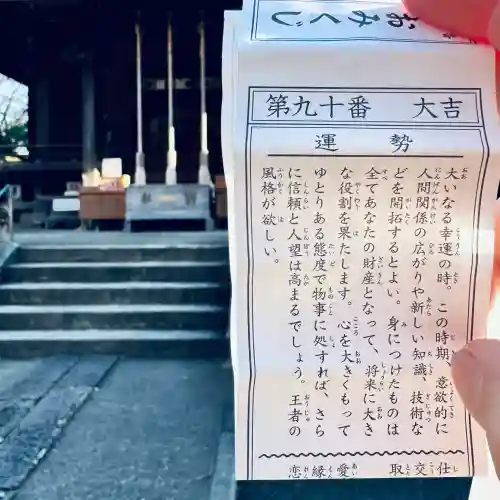 おみくじ
第九十番　大吉
運　勢
大いなる幸運の時。この時期、意欲的に
人間関係の広がりや新しい知識、技術な
どを開拓するとよい。身につけたものは
全てあなたの財産となって、将来に大き
な役割を果たします。心を大きくもって
ゆとりある態度で物事に処すれば、さら
に信頼と人望は高まるでしょう。王者の
風格が欲しい。
仕
交
取
愛
縁
恋